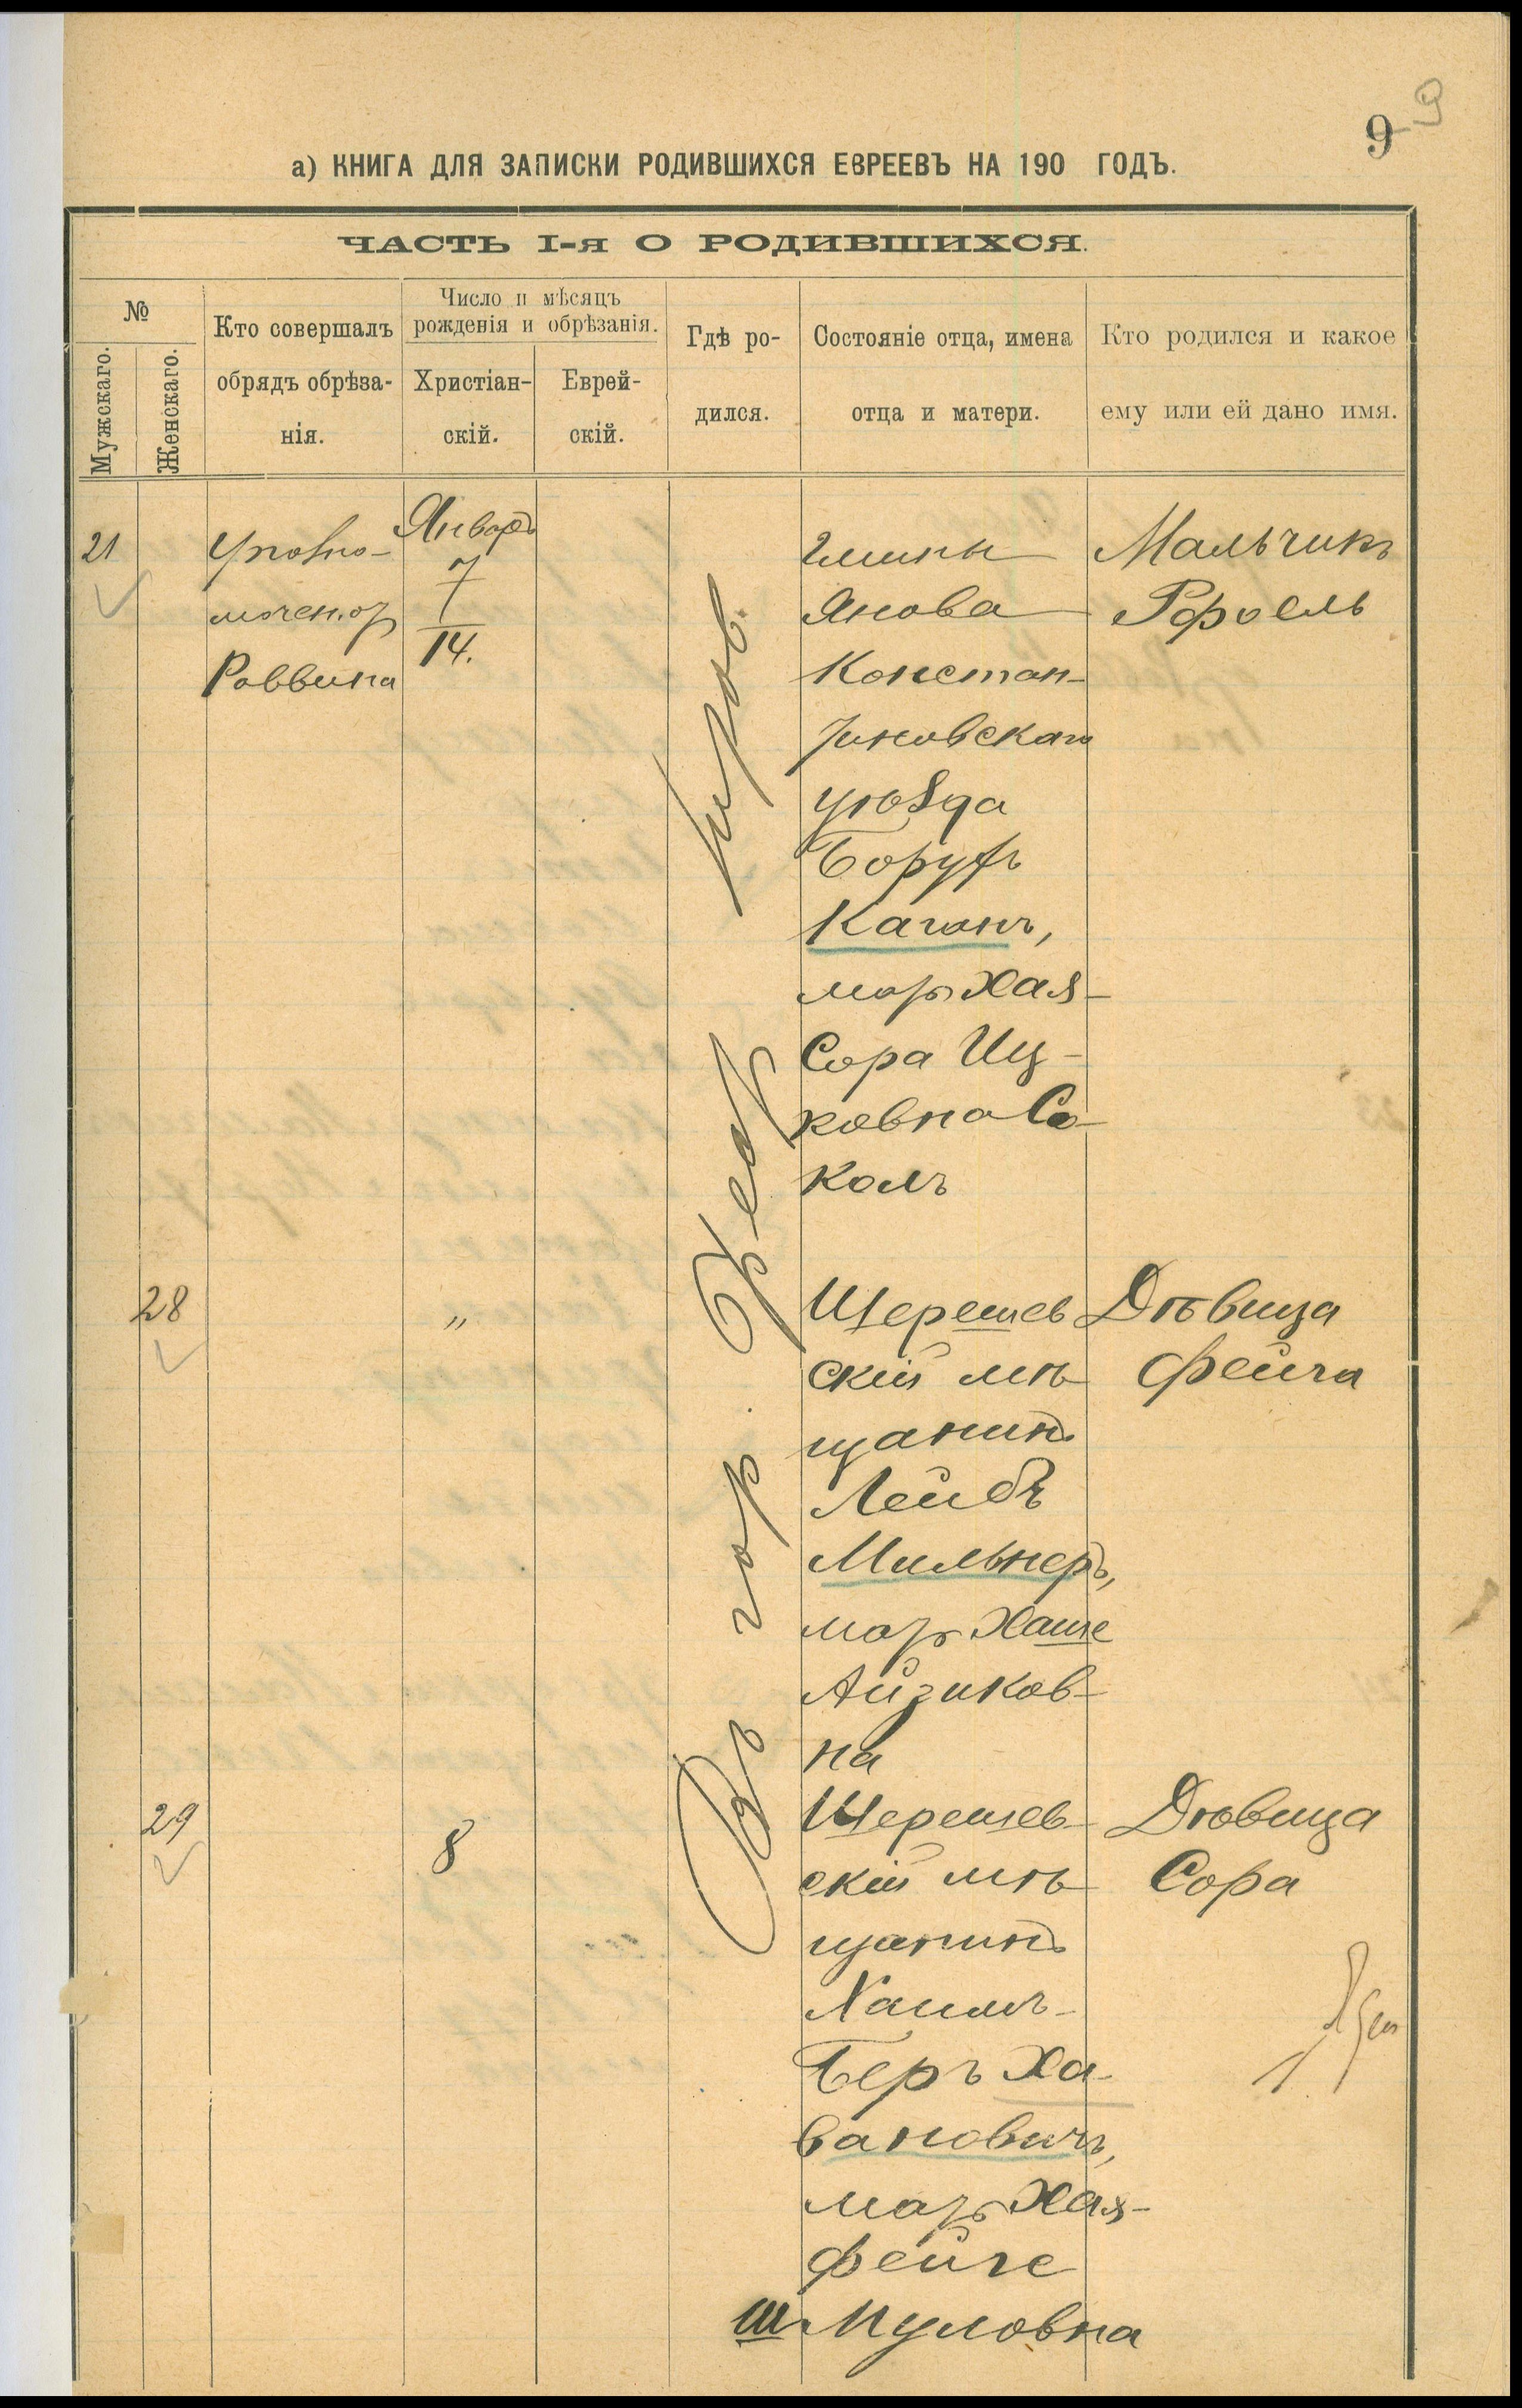 9 9
а) КНИГА ДЛЯ ЗАПИСКИ РОДИВШИХСЯ ЕВРЕЕВЪ НА 190 ГОДЪ.
ЧАСТЬ I-я О РОДИВШИХСЯ.
№
Мужскаго.
Женскаго.
Кто совершалъ
обрядъ обрѣза-
нія.
Число и мѣсяцъ
рожденія и обрѣзанія.
Христіан-
скій.
Еврей-
скій.
Гдѣ ро-
дился.
Состояніе отца, имена
отца и матери.
Кто родился и какое
ему или ей дано имя.
Въ гор. Брест
21
Уполно-
мочен. от
Раввина
Январь
7
14.
Глины
Янова
Констан-
тиновскаго
уѣзда
Борухъ
Каганъ,
мать Хая-
Сора Иц-
ковна Со-
колъ
Мальчикъ
Рфоель
28
"
Шерешев
скій мѣ
щанинъ
Лейбъ
Мильнеръ,
мать Хаше
Айзиков-
на
Дѣвица
Фейга
29
8
Шерешев-
скій мѣ
щанинъ
Хаимъ-
Беръ Ха-
вановичъ,
мать Хая-
Фейге
Шмуловна
Дѣвица
Сора